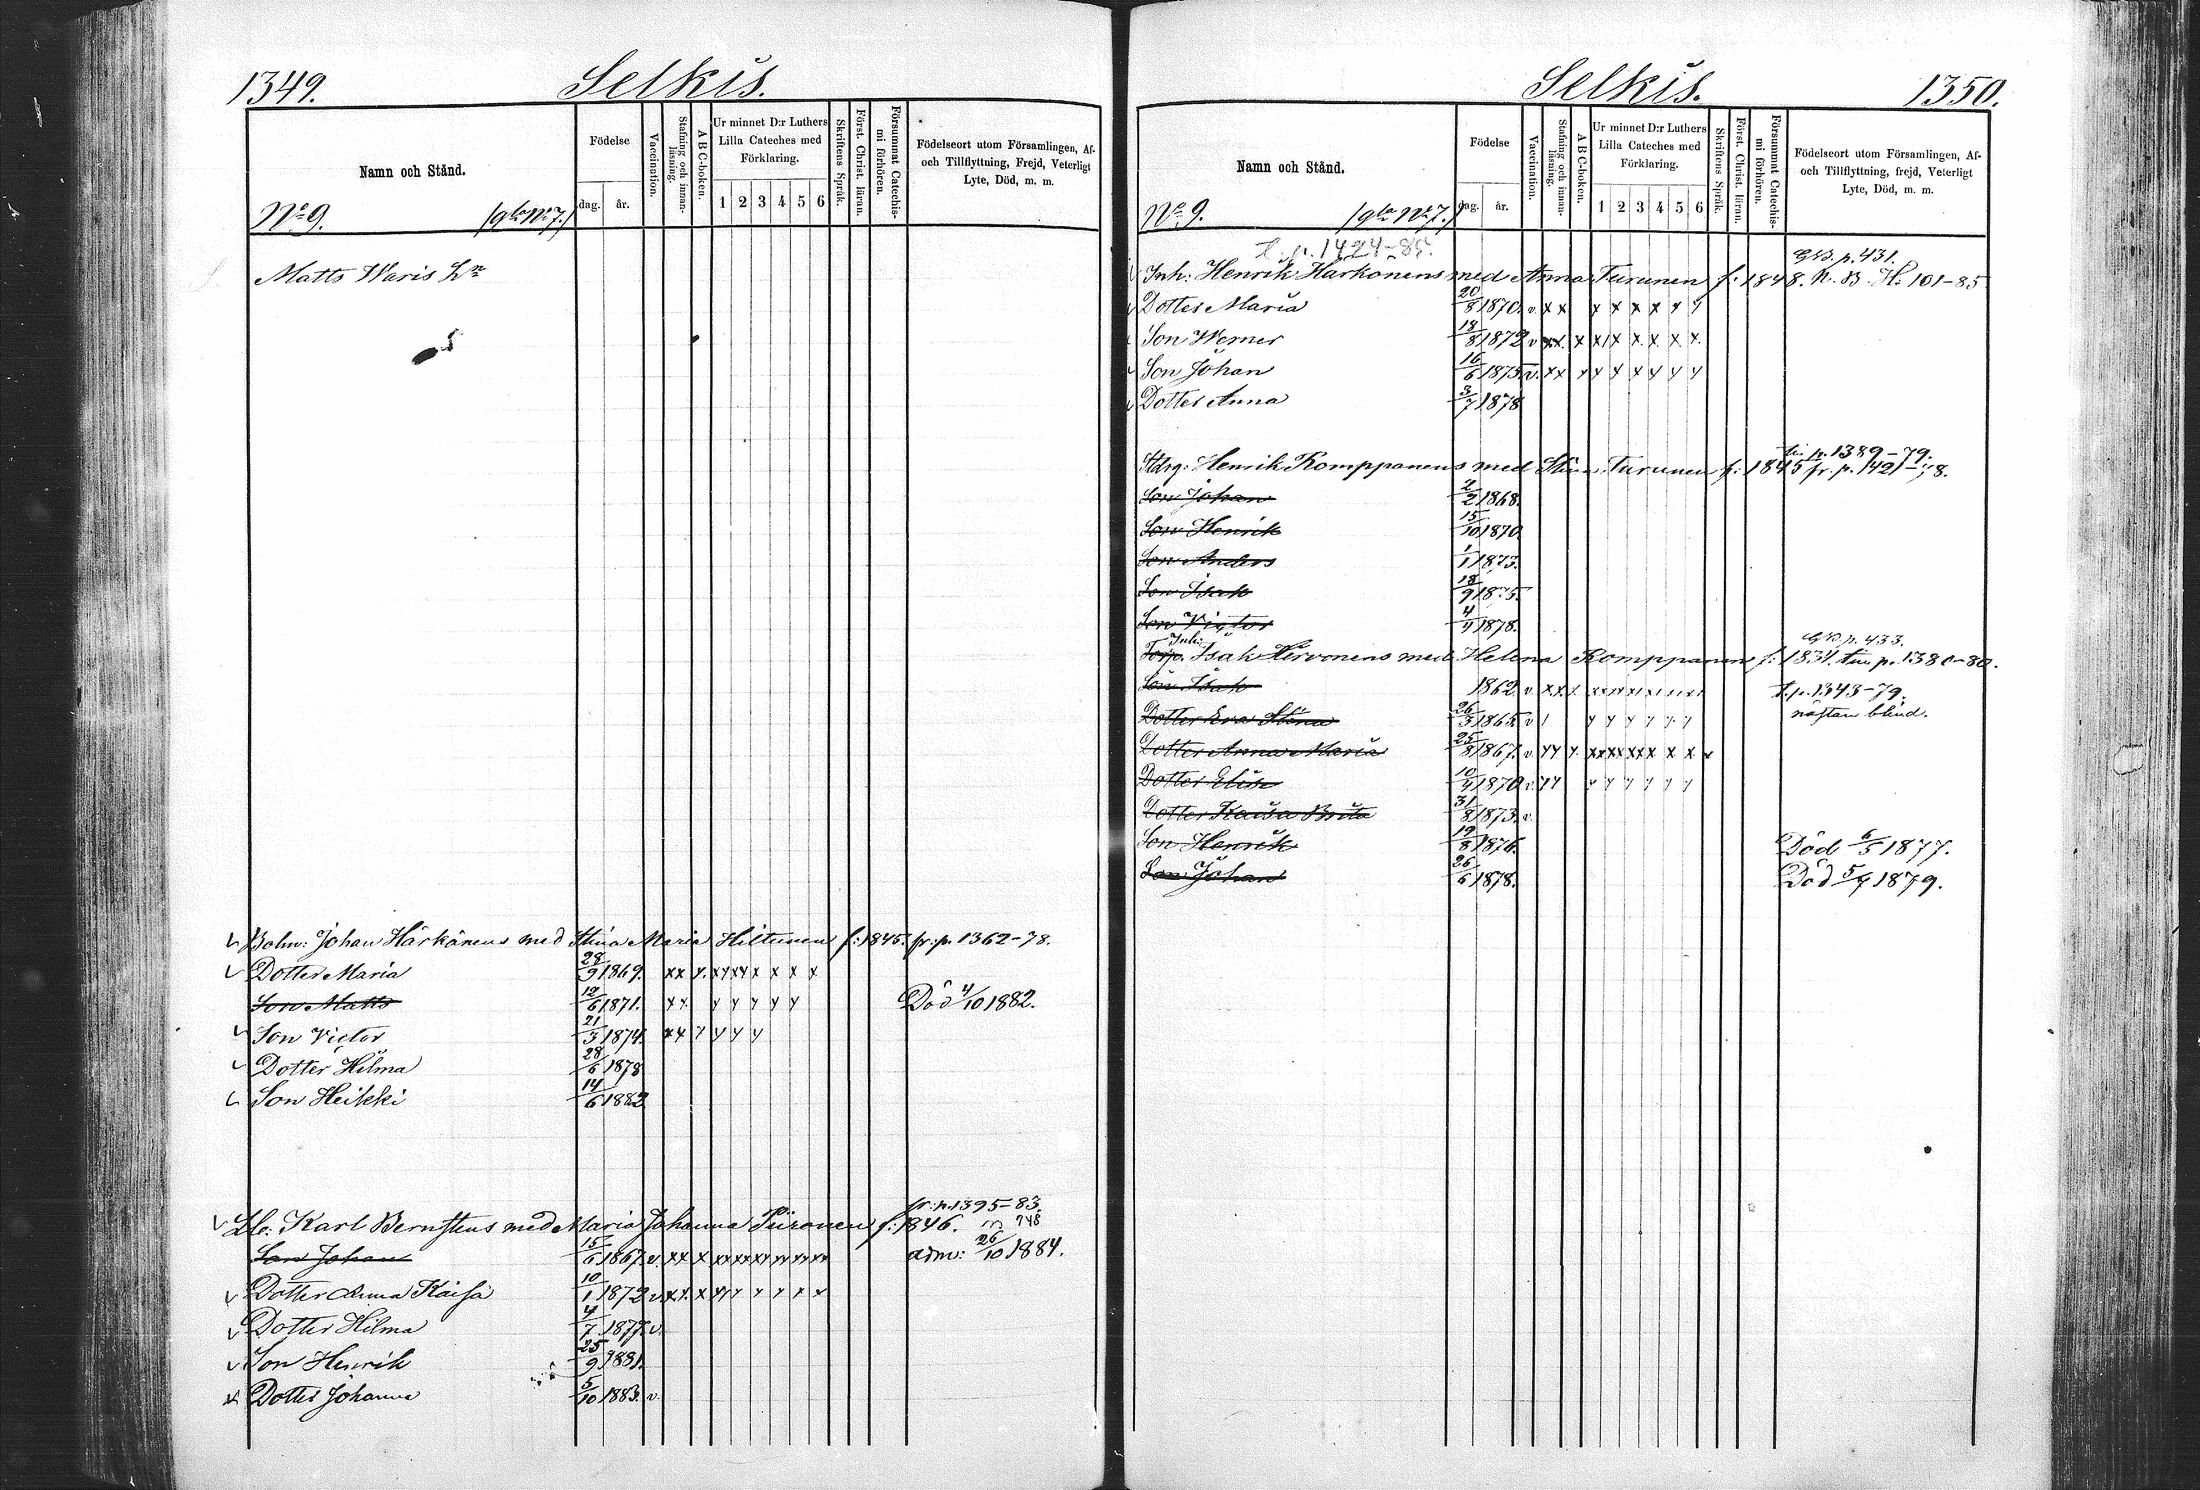 1349.
Selkis.
Namn och Stånd.
Födelse
dag. år.
Vaccination.
Stafning och innanläsning.
A B C-boken.
Ur minnet D:r Luthers Lilla Cateches med Förklaring.
1 2 3 4 5 6
Skriftens Språk.
Först. Christ. läran.
Försummat Catechismi förhören.
Födelseort utom Församlingen, Af- och Tillflyttning, Frejd, Veterligt Lyte, Död, m. m.
No 9. (gla No 7.)
Matts Waris
Johan Härkönens med Stina Maria Hiltunen f: 1845. fr: p. 1362-78.
Dotter Maria 28/9 1869. xx
Son Matts 12/6 1871. Död 4/10 1882.
Son Victor 21/3 1874.
Dotter Hilma 28/6 1878
Son Heikki 14/6 1882
fr: p. 1395-83.
Karl Bernstens med Maria Johanna Piironen f: 1846.
Son Johan 15/6 1867. v. adm: 26/10 1884.
Dotter Anna Kaisa 10/1 1872 v.
Dotter Hilma 4/7 1877. v.
Son Henrik 25/9 1881.
Dotter Johanna 5/10 1883. v.
Selkis.
1350.
Namn och Stånd.
Födelse
dag. år.
Vaccination.
Stafning och innanläsning.
A B C-boken.
Ur minnet D:r Luthers Lilla Cateches med Förklaring.
1 2 3 4 5 6
Skriftens Språk.
Först. Christ. läran.
Försummat Catechismi förhören.
Födelseort utom Församlingen, Af- och Tillflyttning, frejd, Veterligt Lyte, Död, m. m.
No 9. (gla No 7.)
t. p. 1424-85.
p. 431.
Inh: Henrik Härkönens med Anna Turunen f: 1848. N. B. H: 101-85
Dotter Maria 20/8 1870. v. xx
Son Werner 18/8 1872 v
Son Johan 16/6 1875. v.
Dotter Anna 3/7 1878
p. 1389-79.
Henrik Komppanens med Stina Turunen f: 1845 fr. p. 1421-78.
Son Johan 2/2 1868.
Son Henrik 15/10 1870.
Son Anders 1/1 1873.
Son Isak 18/9 1875.
Son Victor 4/4 1878.
p. 433.
Inh:
Torp. Isak Hirvonens med Helena Komppanen f: 1834. p. 1380-80.
Son Isak 1862 v. t. p. 1343-79.
Dotter Eva Stina 26/3 1865. v nästan blind.
Dotter Anna Maria 25/8 1867. v.
Dotter Elisa 10/4 1870 v.
Dotter Kaisa Brita 31/8 1873. v.
Son Henrik 19/8 1876. Död 6/5 1877.
Son Johan 26/6 1878. Död 5/4 1879.